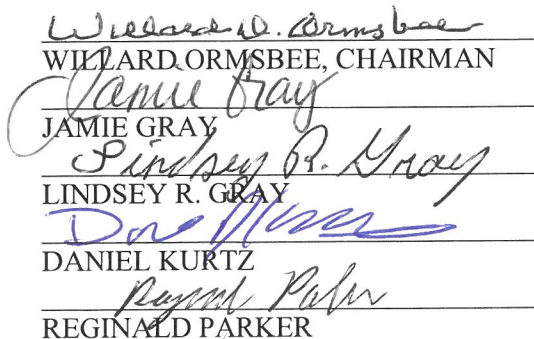 Willard D. Ormsbee
WILLARD ORMSBEE, CHAIRMAN
Jamie Gray
JAMIE GRAY
Lindsey R. Gray
LINDSEY R. GRAY
DANIEL KURTZ
REGINALD PARKER